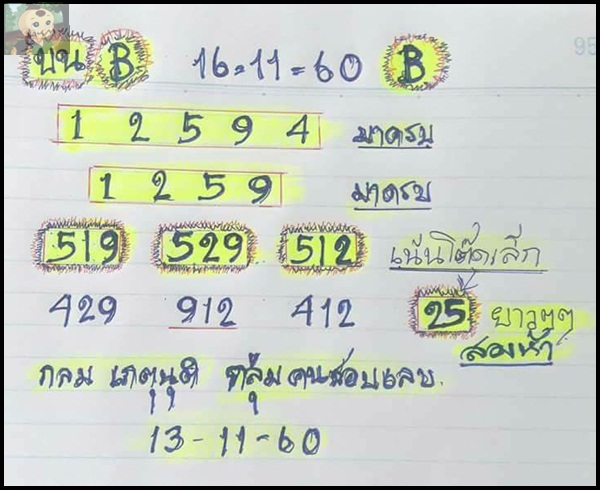 บน B 16-11-60 B
1 2 5 9 4 มาครบ
1 2 5 9 มาครบ
519 529 512 เน้นโต๊ดเล็ก
429 912 412 25 ยาวๆๆ
สองห้า
กลม เกตุนุติ กลุ่มคนชอบเลข.
13-11-60